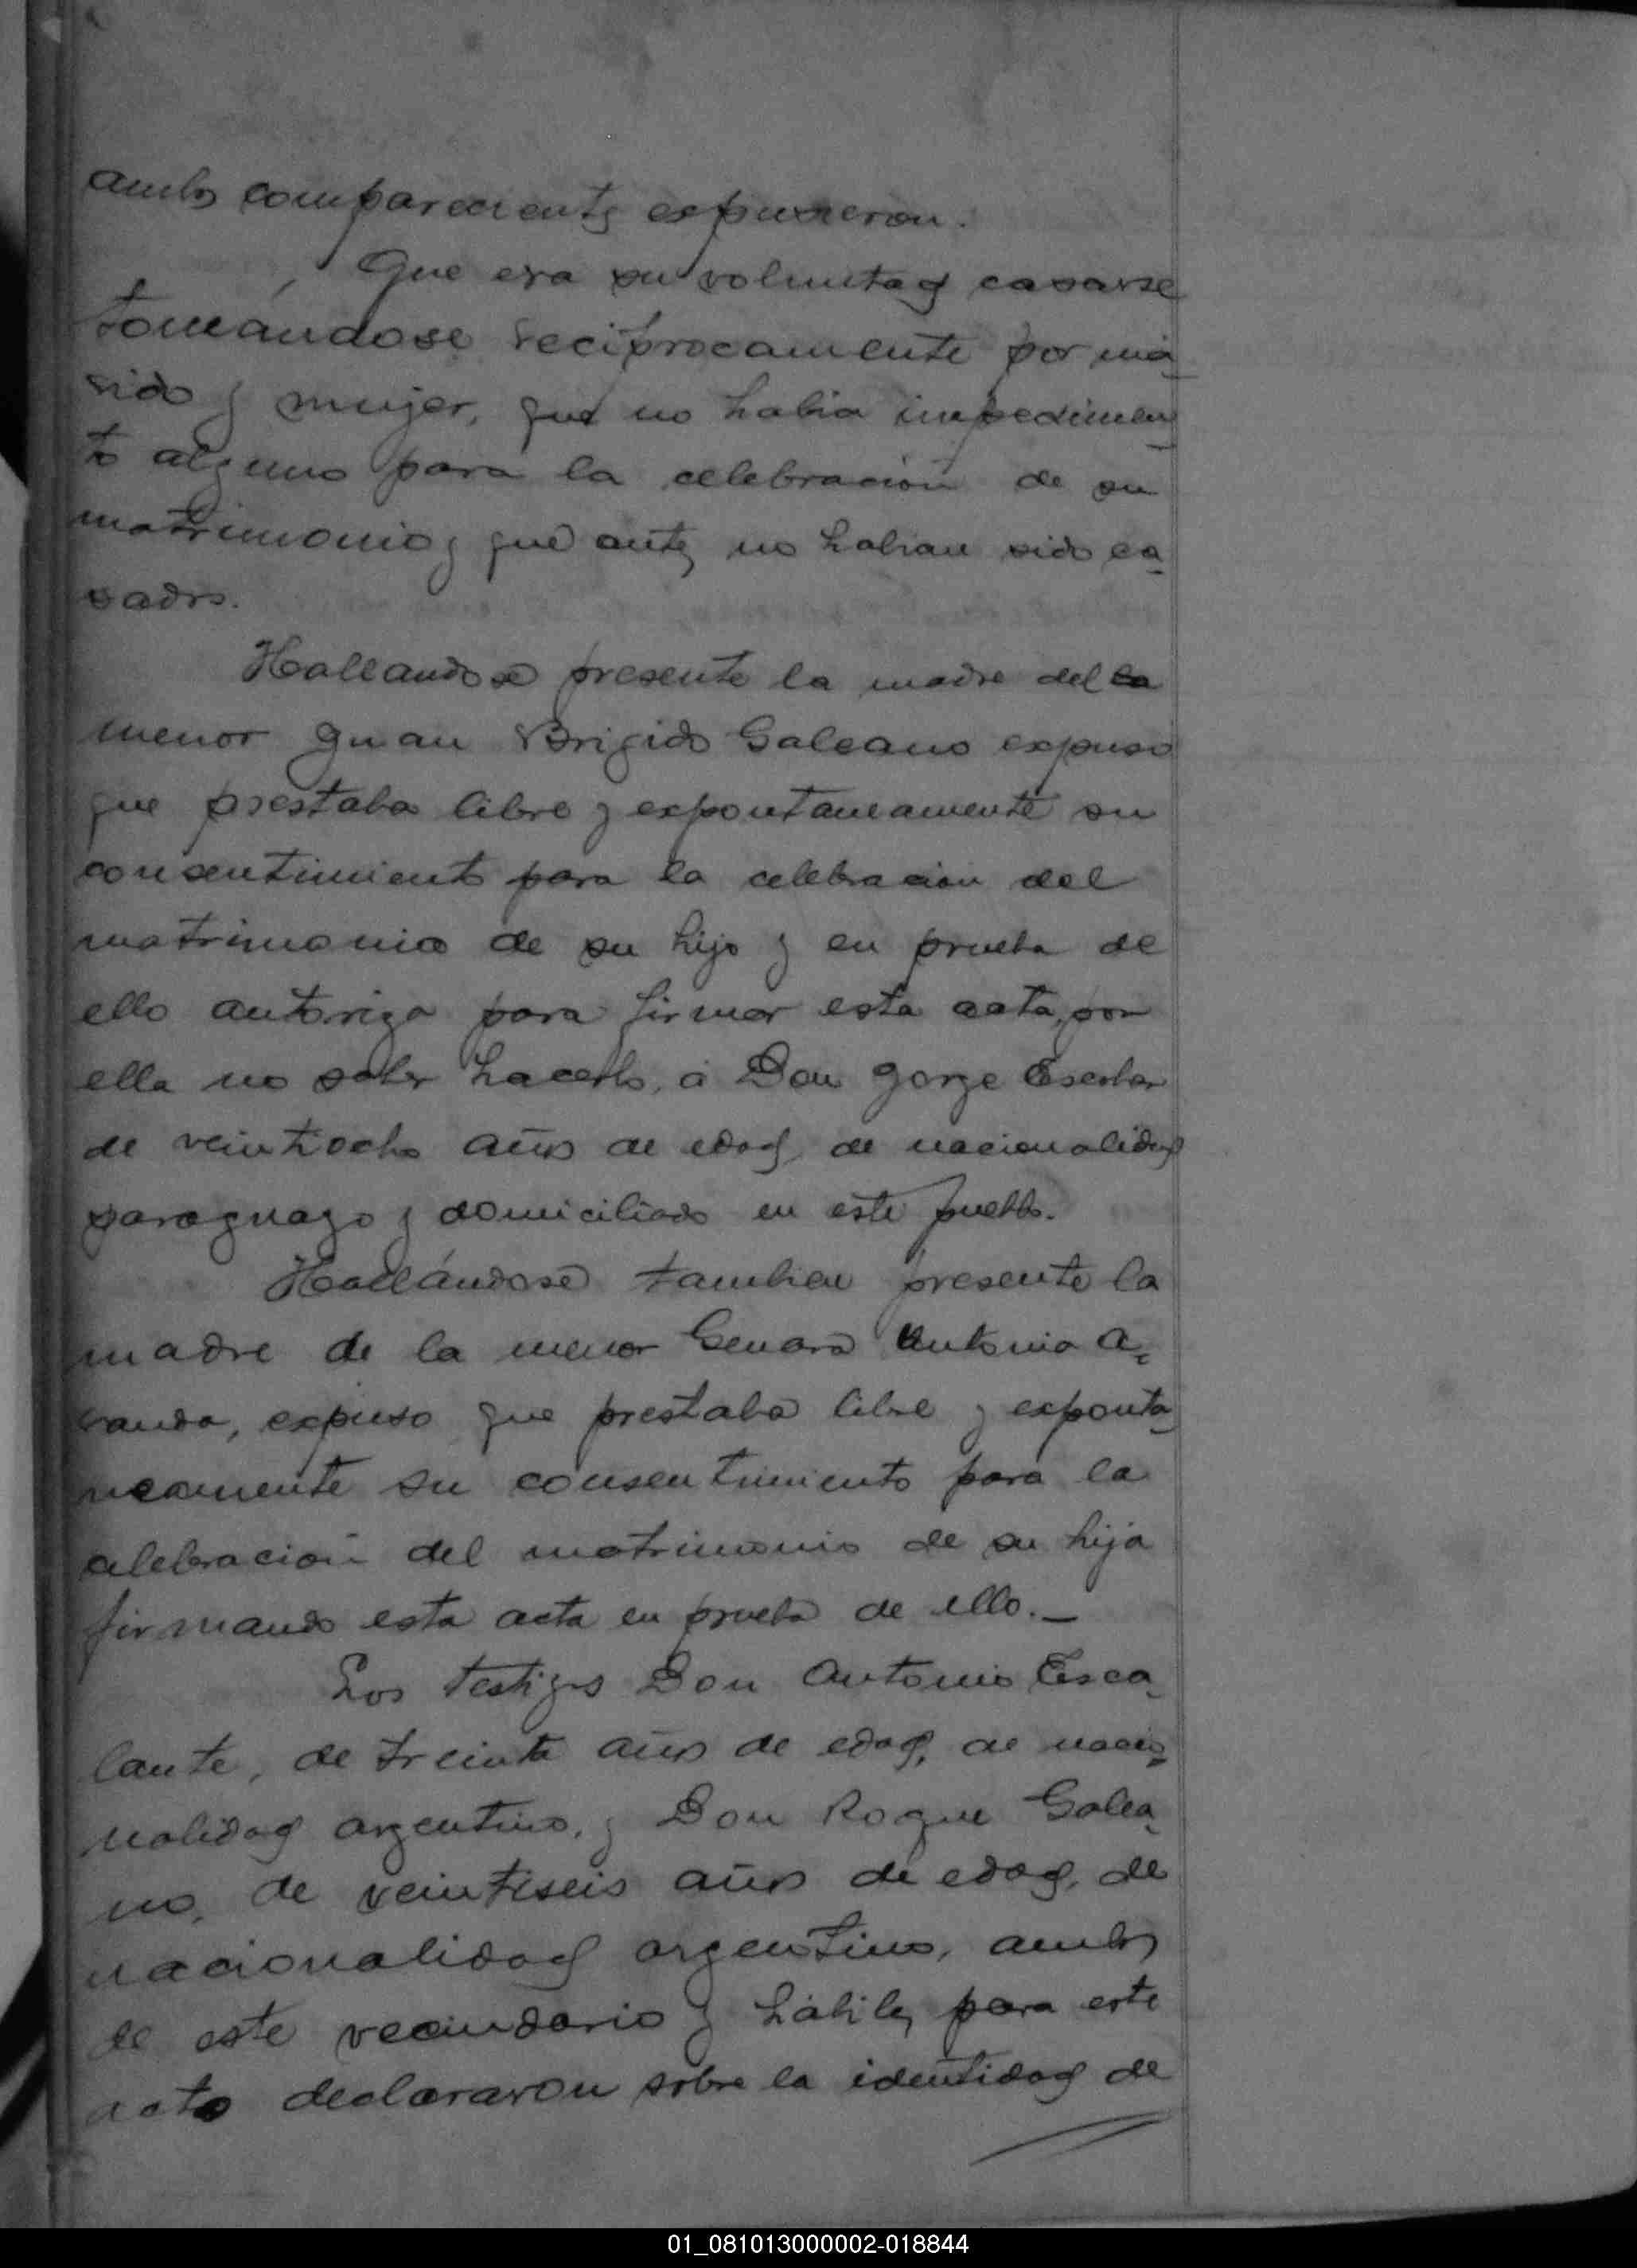 ambos comparecientes expusieron.
Que era su voluntad casarse
tomándose reciprocamente por ma-
rido y mujer, que no habia impedimen-
to alguno para la celebracion de su
matrimonio y que antes no habian sido ca-
sados.
Hallandose presente la madre del
menor Juan Brigido Galeano expuso
que prestaba libre y expontaneamente su
consentimiento para la celebracion del
matrimonio de su hijo y en prueba de
ello autoriza para firmar esta acta, por
ella no saber hacerlo, á Don Jorge Escobar
de veintiocho años de edad, de nacionalidad
paraguayo y domiciliado en este pueblo.
Hallándose tambien presente la
madre de la menor Genara Antonia A-
randa, expuso que prestaba libre y exponta-
neamente su consentimiento para la
celebracion del matrimonio de su hija
firmando esta acta en prueba de ello. —
Los testigos Don Antonio Esca-
lante, de treinta años de edad, de nacio-
nalidad argentino, y Don Roque Galea-
no, de veintiseis años de edad, de
nacionalidad argentino, ambos
de este vecindario y hábiles para este
acto declararon sobre la identidad de
01_081013000002-018844